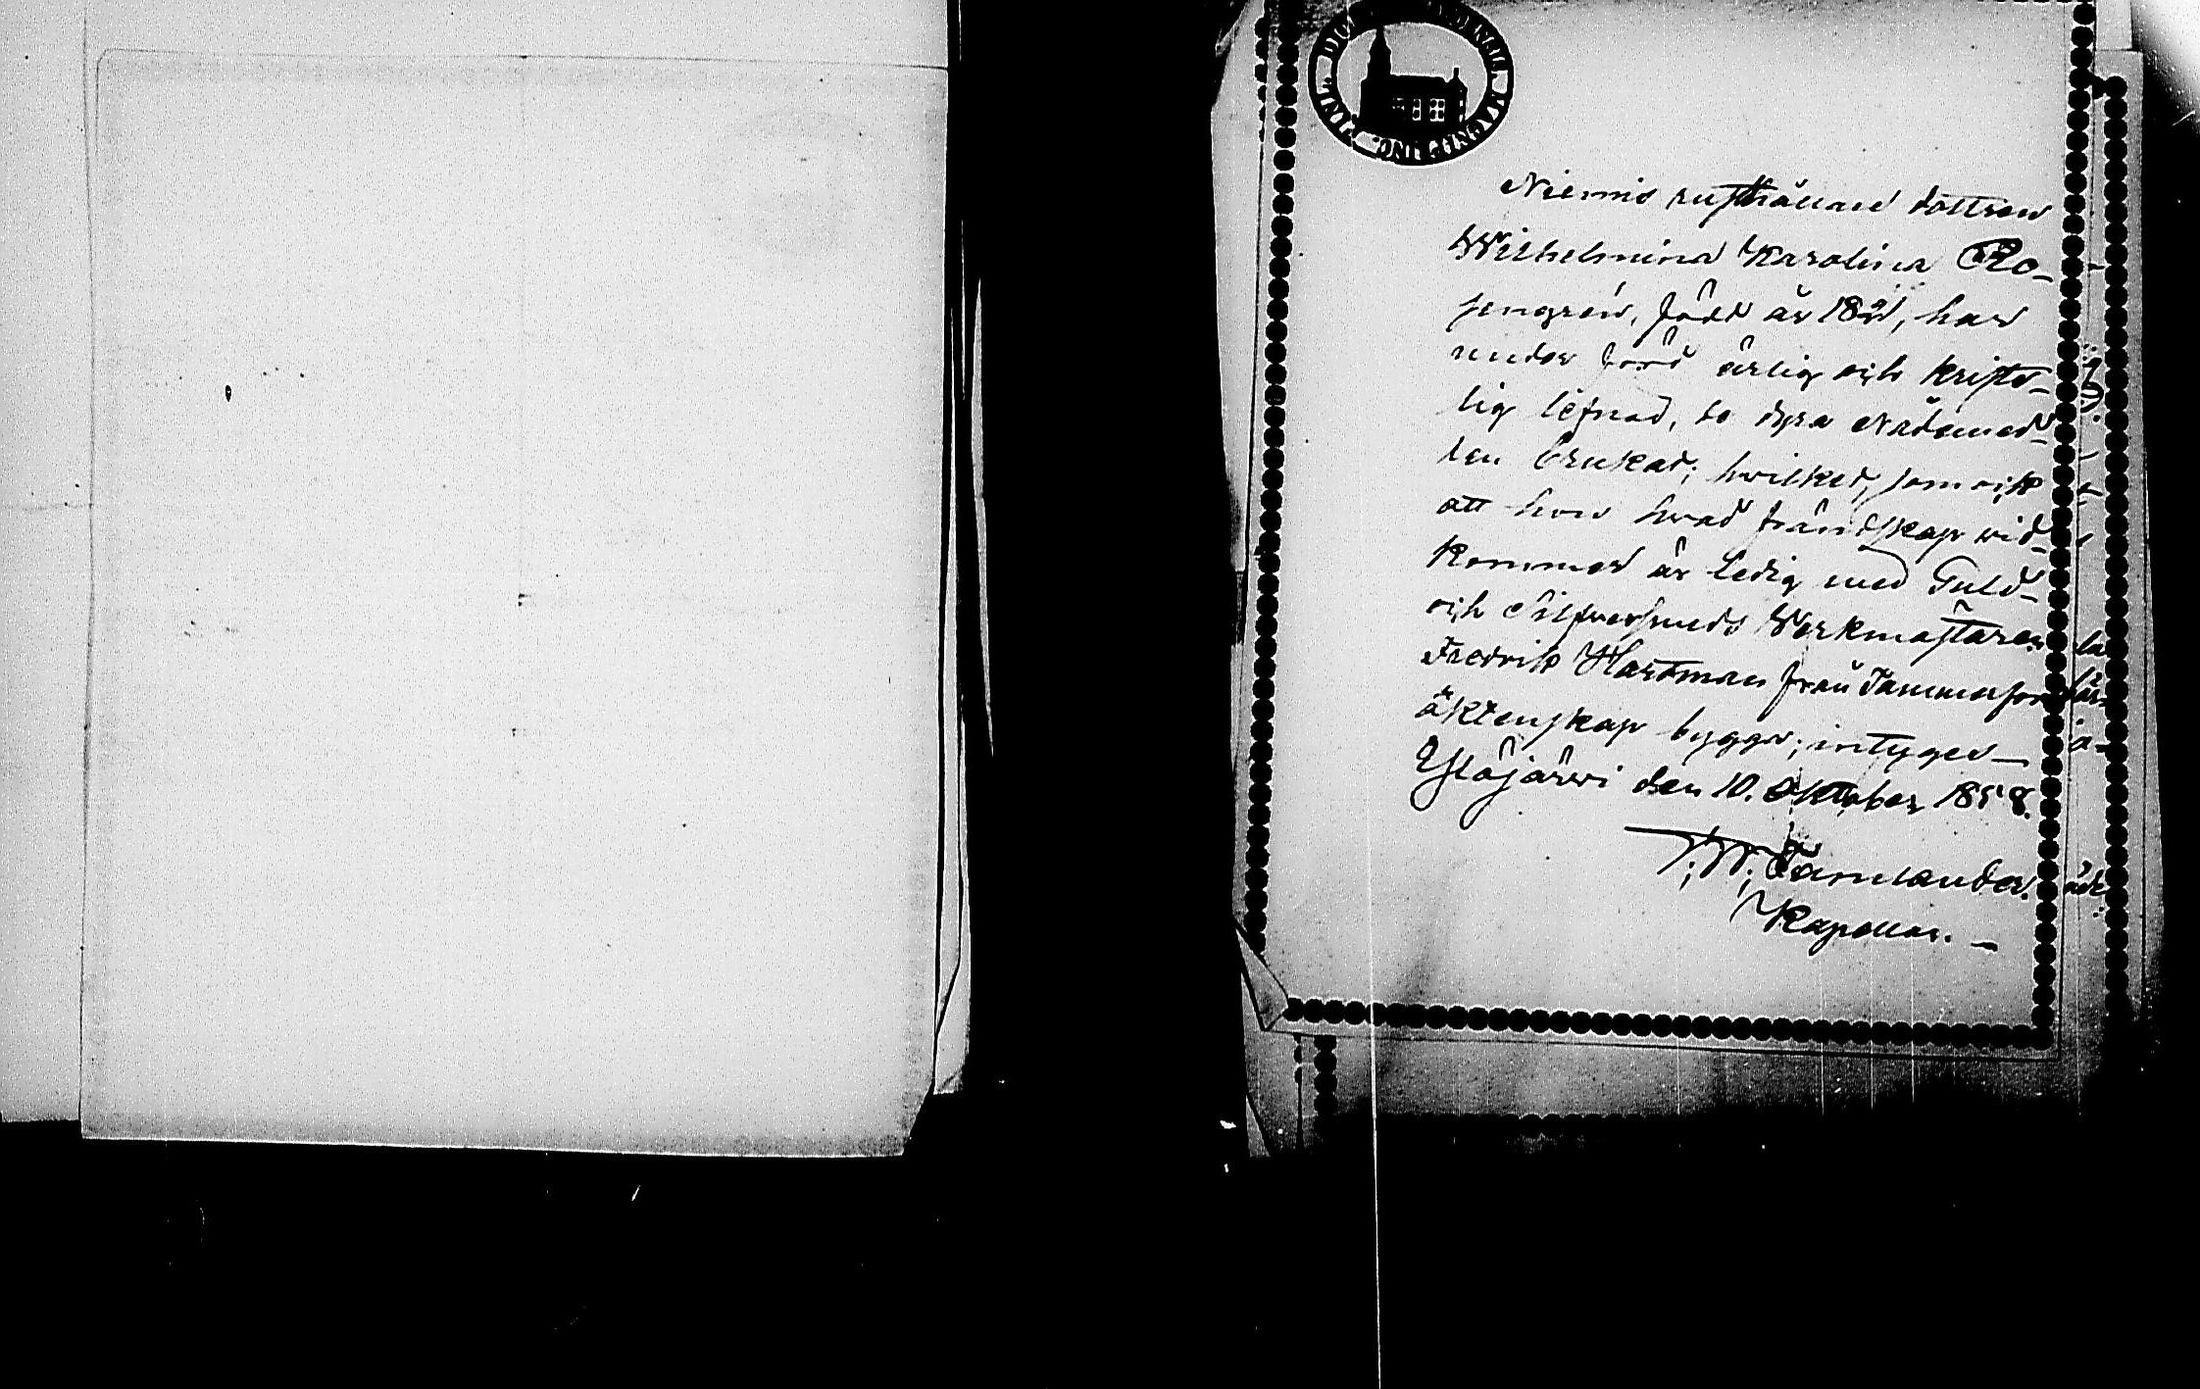 Niemis rusthållare dottren
Wilhelmina Karolina Ro-
sengrén, född år 1821, har
under förd ärlig och kriste-
lig lefnad, de dyra Nådemed-
len brukat; hvilket, som ock
att hon hvad frändskap wid-
kommer är ledig med Guld-
och Silfversmeds Werkmästaren
Fredrik Hartman från Tammerfors
äktenskap bygga; intygar
Ylöjärvi den 10. Oktober 1858.
Kapellan.